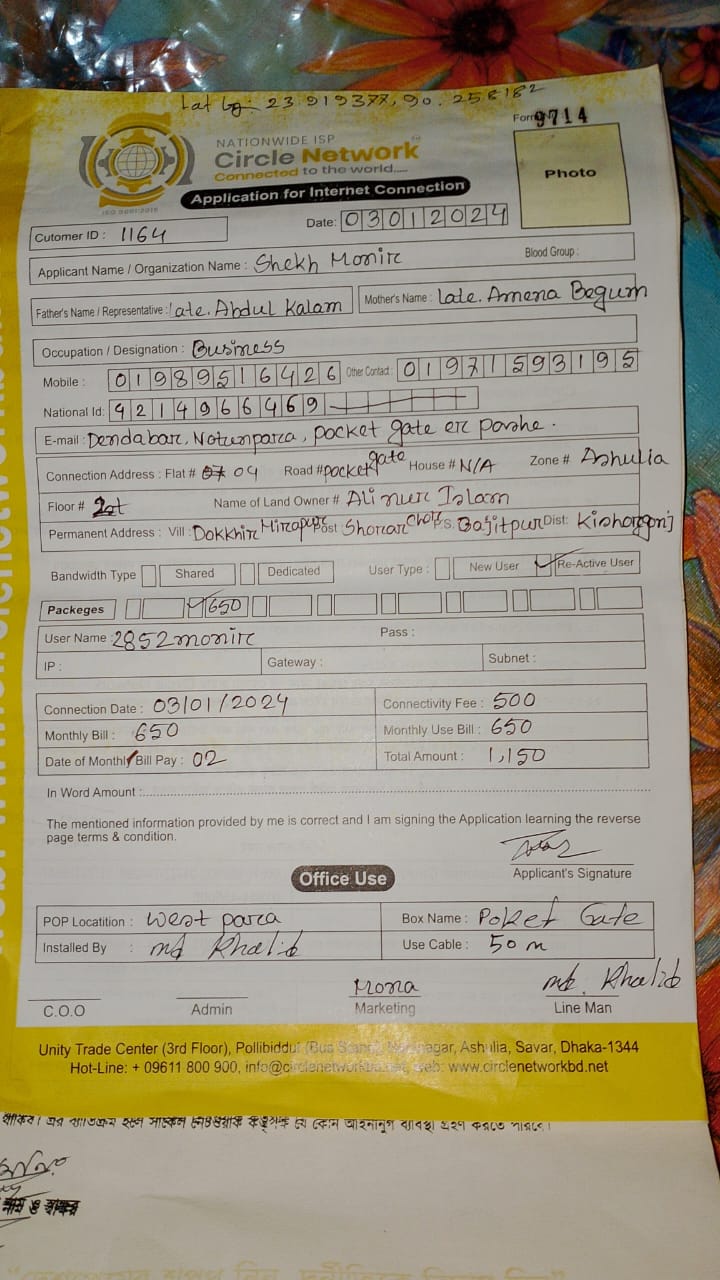 Lat lg: 23.919377, 90.258182
Form 9714
NATIONWIDE ISP
Circle Network
Connected to the world.....
Application for Internet Connection
ISO 9001:2015
Photo
Date: 03012024
Cutomer ID : 1164
Applicant Name / Organization Name : Shekh Monir Blood Group :
Father's Name / Representative : Late. Abdul Kalam Mother's Name : Late. Amena Begum
Occupation / Designation : Business
Mobile : 01989516426 Other Contact : 01971593195
National Id: 4214966469
E-mail : Dendabar, Notunpara, pocket gate er pashe.
Connection Address : Flat # 04 Road # pocket gate House # N/A Zone # Ashulia
Floor # 1st Name of Land Owner # Ali nur Islam
Permanent Address : Vill : Dokkhin Mirapur Post : Shorar Chor P.S. Bajitpur Dist: Kishorgonj
Bandwidth Type Shared Dedicated User Type : New User Re-Active User
Packeges 650
User Name : 2852monir Pass :
IP : Gateway : Subnet :
Connection Date : 03/01/2024 Connectivity Fee : 500
Monthly Bill : 650 Monthly Use Bill : 650
Date of Monthly Bill Pay : 02 Total Amount : 1,150
In Word Amount :
The mentioned information provided by me is correct and I am signing the Application learning the reverse
page terms & condition.
Applicant's Signature
Office Use
POP Locatition : West para Box Name : Poket Gate
Installed By : md Khalid Use Cable : 50 m
Mona md. Khalid
C.O.O Admin Marketing Line Man
Unity Trade Center (3rd Floor), Pollibiddut (Bus Stand), nagar, Ashulia, Savar, Dhaka-1344
Hot-Line: + 09611 800 900, info@circlenetworkbd.net, web: www.circlenetworkbd.net
নাম ও স্বাক্ষর